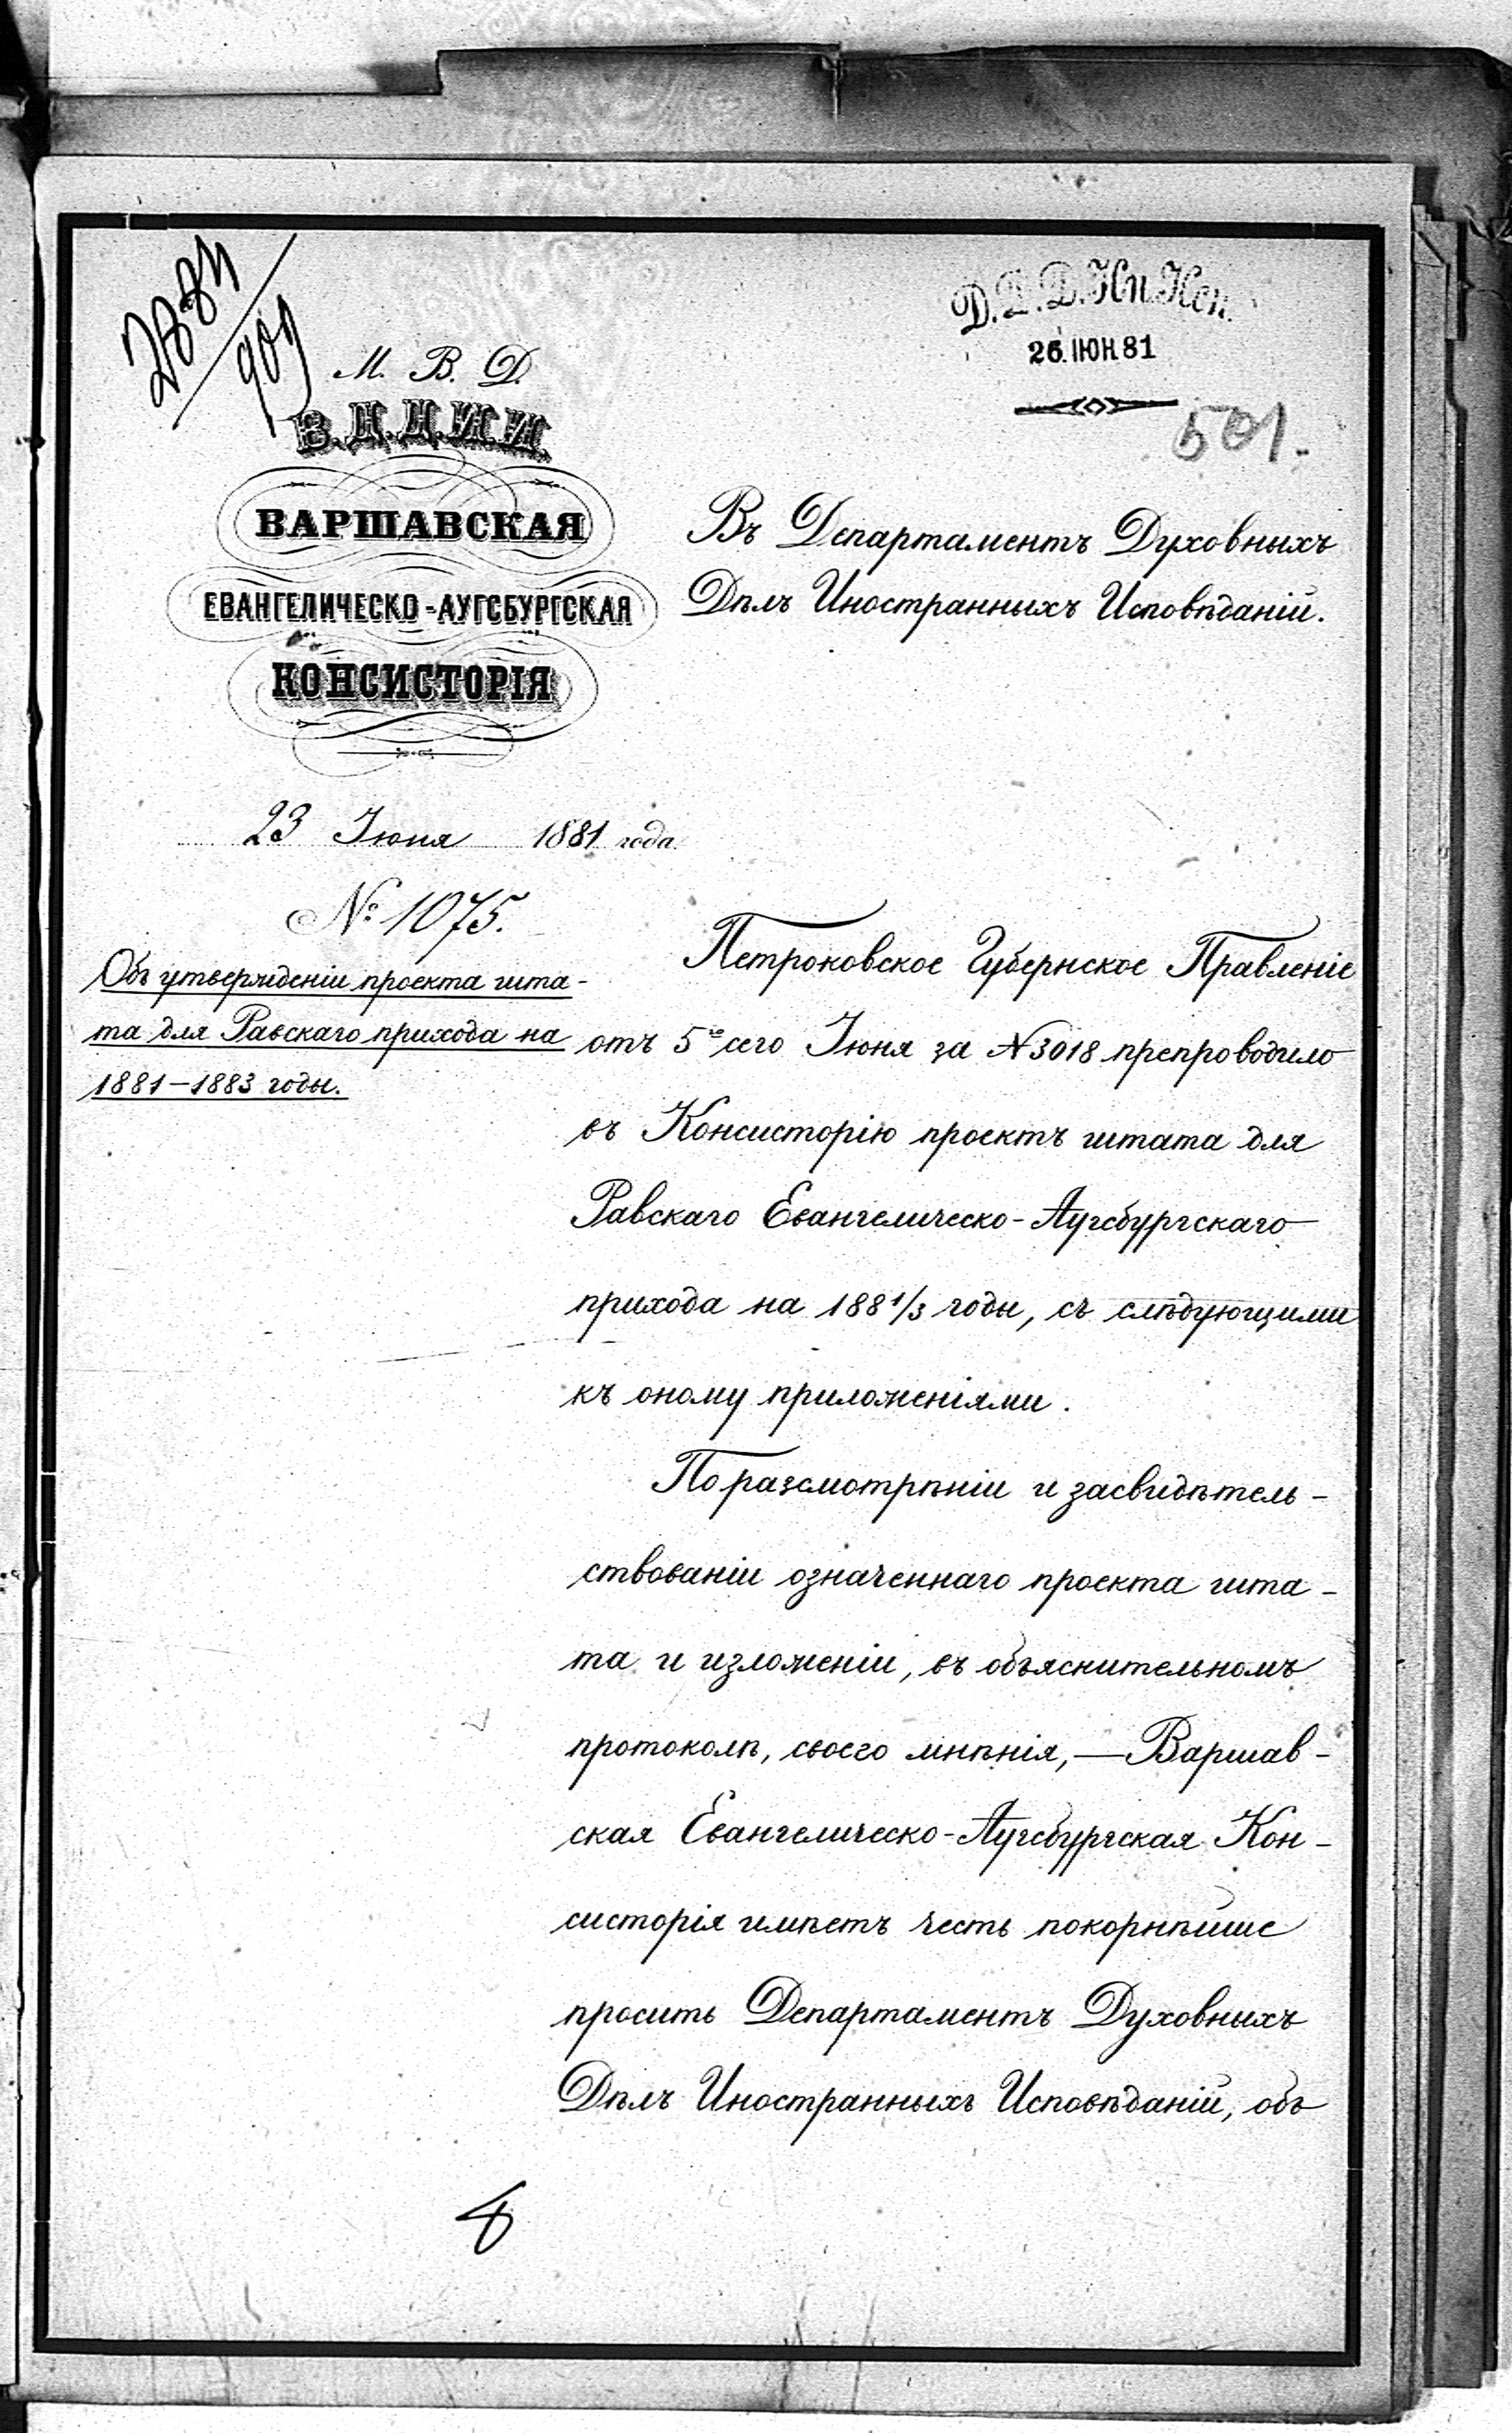 М. В. Д.
В.Д.Д.И.И.
ВАРШАВСКАЯ
ЕВАНГЕЛИЧЕСКО-АУГСБУРГСКАЯ
КОНСИСТОРІЯ
23 Іюня 1881 года
№ 1075.
Объ утвержденіи проекта шта-
та для Равскаго прихода на
1881–1883 годы.
Д.Д.Д.Ин.Исп.
26.ІЮН.81
501.
Въ Департаментъ Духовныхъ
Дѣлъ Иностранныхъ Исповѣданій.
Петроковское Губернское Правленіе
отъ 5го сего Іюня за №3018 препроводило
въ Консисторію проектъ штата для
Равскаго Евангелическо-Аугсбургскаго
прихода на 188 1/3 годы, съ слѣдующими
къ оному приложеніями.
По разсмотрѣніи и засвидѣтель-
ствованіи означеннаго проекта шта-
та и изложеніи, въ объяснительномъ
протоколѣ, своего мнѣнія,—Варшав-
ская Евангелическо-Аугсбургская Кон-
систорія имѣетъ честь покорнѣйше
просить Департаментъ Духовныхъ
Дѣлъ Иностранныхъ Исповѣданій, объ